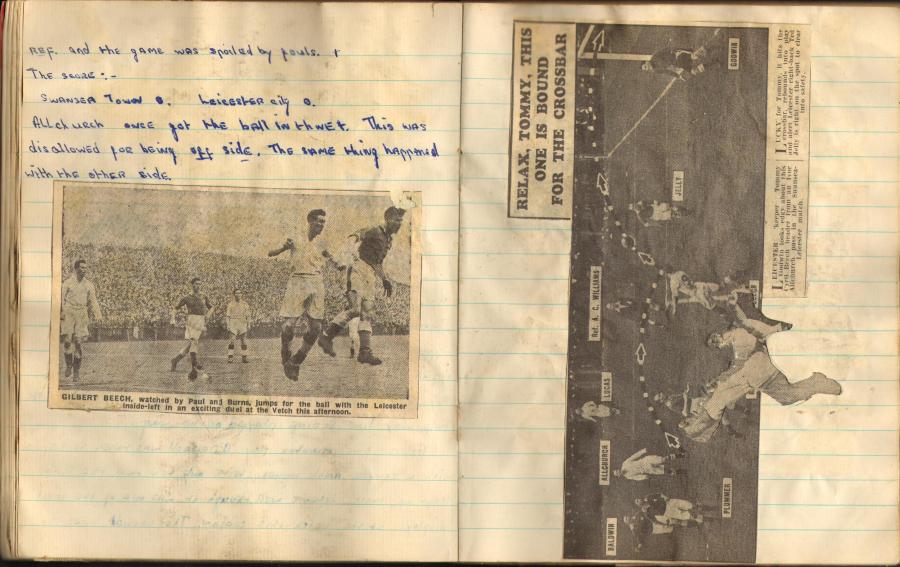 REF. and the game was spoiled by fouls. +
The score:-
SWANSEA TOWN 0. Leicester city 0.
Allchurch once got the ball in th net. This was
disallowed for being off side. The same thing happened
with the other side.
GILBERT BEECH, watched by Paul and Burns, jumps for the ball with the Leicester
inside-left in an exciting duel at the Vetch this afternoon.
RELAX, TOMMY, THIS
ONE IS BOUND
FOR THE CROSSBAR
GODWIN
JELLY
Ref. A. C. WILLIAMS
LUCAS
ALLCHURCH
BALDWIN
PLUMMER
LEICESTER 'keeper Tommy
Godwin looks edgy about this
Cyril Beech header from an Ivor
Allchurch pass in the Swansea-
Leicester match.
LUCKY for Tommy, it hits the
crossbar, rebounds into play
and alert Leicester right-back Ted
Jelly is right on the spot to clear
into safety.